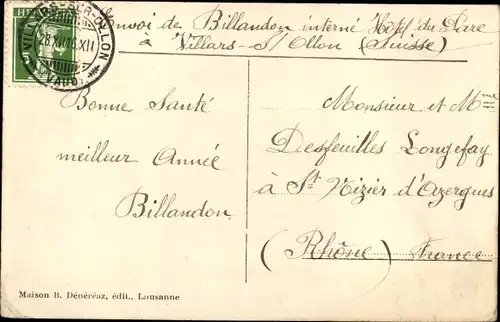 Envoi de Billandon interné Hôtel du Parc
à Villars - s/ Ollon (Suisse)
HELVETIA
VILLARS-SUR-OLLON
28.XII.16.XII
(VAUD)
Bonne Santé
meilleur Année
Billandon
Monsieur et Mme
Desfeuilles Longefay
à St Nizier d'Azergues
(Rhône) France
Maison B. Dénéréaz, édit., Lausanne